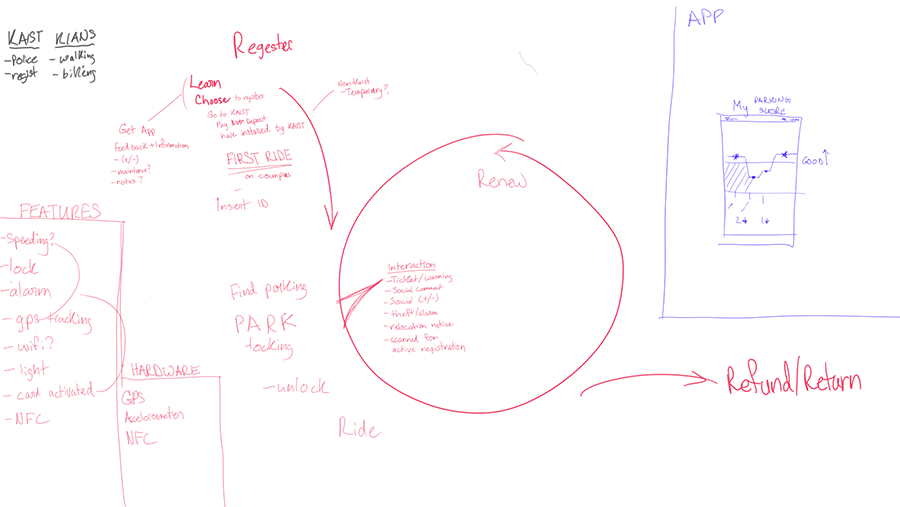 KAIST KIANS
-Police -walking
-regist -biking
Regester
Learn
Choose to register
Go to KAIST
Pay Deposit
have installed by KAIST
Non-Kaist
-Temporary?
Get App
Feedback + Information
-(+/-)
-notes?
FIRST RIDE
on campus
-
Insert ID
FEATURES
-speeding?
-lock
-alarm
-gps tracking
-wifi?
-light
-card activated
-NFC
HARDWARE
GPS
NFC
Find parking
PARK
-locking
-unlock
Ride
Renew
Interaction
-Ticket/warning
-Social
-Social (+/-)
-theft/alarm
-relocation notice
-scanned for
active registration
Refund/Return
APP
My PARKING
SCORE
GOOD↑
2↓ 1↓